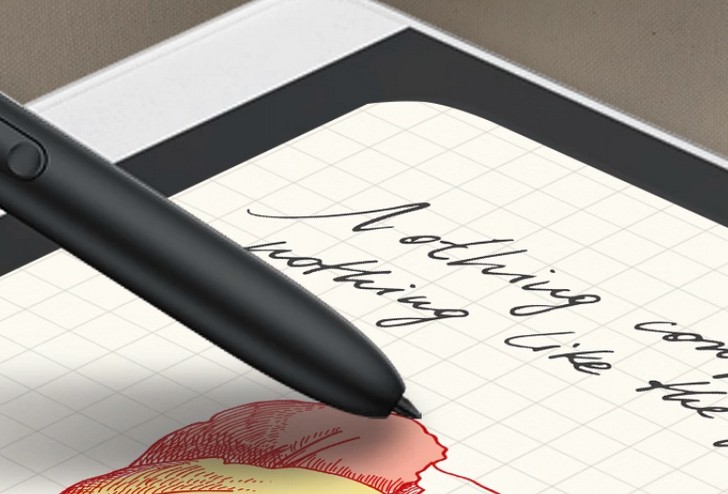 Nothing
nothing like the